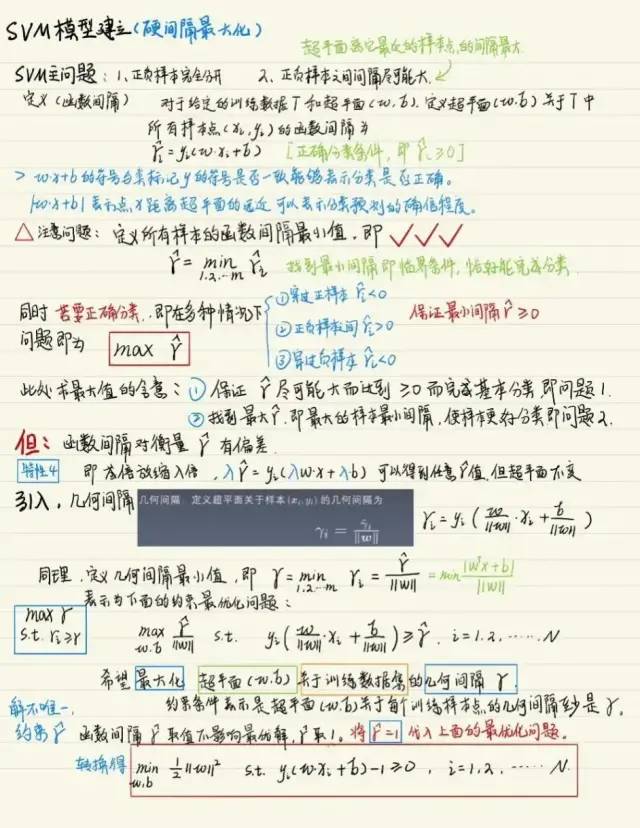 SVM模型建立(硬间隔最大化)
超平面离它最近的样本点的间隔最大
SVM主问题：1、正负样本完全分开 2、正负样本之间间隔尽可能大
定义(函数间隔) 对于给定的训练数据T和超平面(w,b),定义超平面(w,b)关于T中
所有样本点(xᵢ,yᵢ)的函数间隔为
γ̂ᵢ=yᵢ(w·xᵢ+b) [正确分类条件,即γ̂ᵢ≥0]
> w·x+b的符号与类标记y的符号是否一致能够表示分类是否正确。
|w·x+b|表示点x距离超平面的远近 可以表示分类预测的确信程度。
△注意问题：定义所有样本的函数间隔最小值,即 ✓✓✓
γ̂=min 1,2,…m γ̂ᵢ 找到最小间隔即临界条件,恰好能完成分类
同时 若要正确分类,即在多种情况下
①穿过正样本 γ̂ᵢ<0
②正负样本间 γ̂ᵢ>0
③穿过负样本 γ̂ᵢ<0
保证最小间隔γ̂≥0
问题即为 max γ̂
此处求最大值的含意：①保证γ̂尽可能大而达到≥0而完成基本分类即问题1.
②找到最大γ̂,即最大的样本最小间隔,使样本更好分类即问题2.
但：函数间隔对衡量γ̂有偏差.
特性4 即若倍放缩入倍,λγ̂=yᵢ(λw·x+λb)可以得到任意γ̂值,但超平面不变
引入,几何间隔
几何间隔 定义超平面关于样本(xᵢ,yᵢ)的几何间隔为
γᵢ=γ̂ᵢ/||w||
γᵢ=yᵢ(w/||w||·xᵢ+b/||w||)
同理,定义几何间隔最小值,即 γ=min 1,2,…m γᵢ=γ̂/||w||=min|wᵀx+b|/||w||
表示为下面的约束最优化问题：
max γ
s.t. γᵢ≥γ
max w,b γ̂/||w|| s.t. yᵢ(w/||w||·xᵢ+b/||w||)≥γ̂, i=1,2,……N
希望 最大化 超平面(w,b)关于训练数据集的几何间隔γ,
约束条件表示是超平面(w,b)关于每个训练样本点的几何间隔至少是γ,
解不唯一,
约束γ̂
函数间隔γ̂取值不影响最优解,γ̂取1。将γ̂=1代入上面的最优化问题。
转换得 min w,b ½||w||² s.t. yᵢ(w·xᵢ+b)-1≥0, i=1,2,……N.